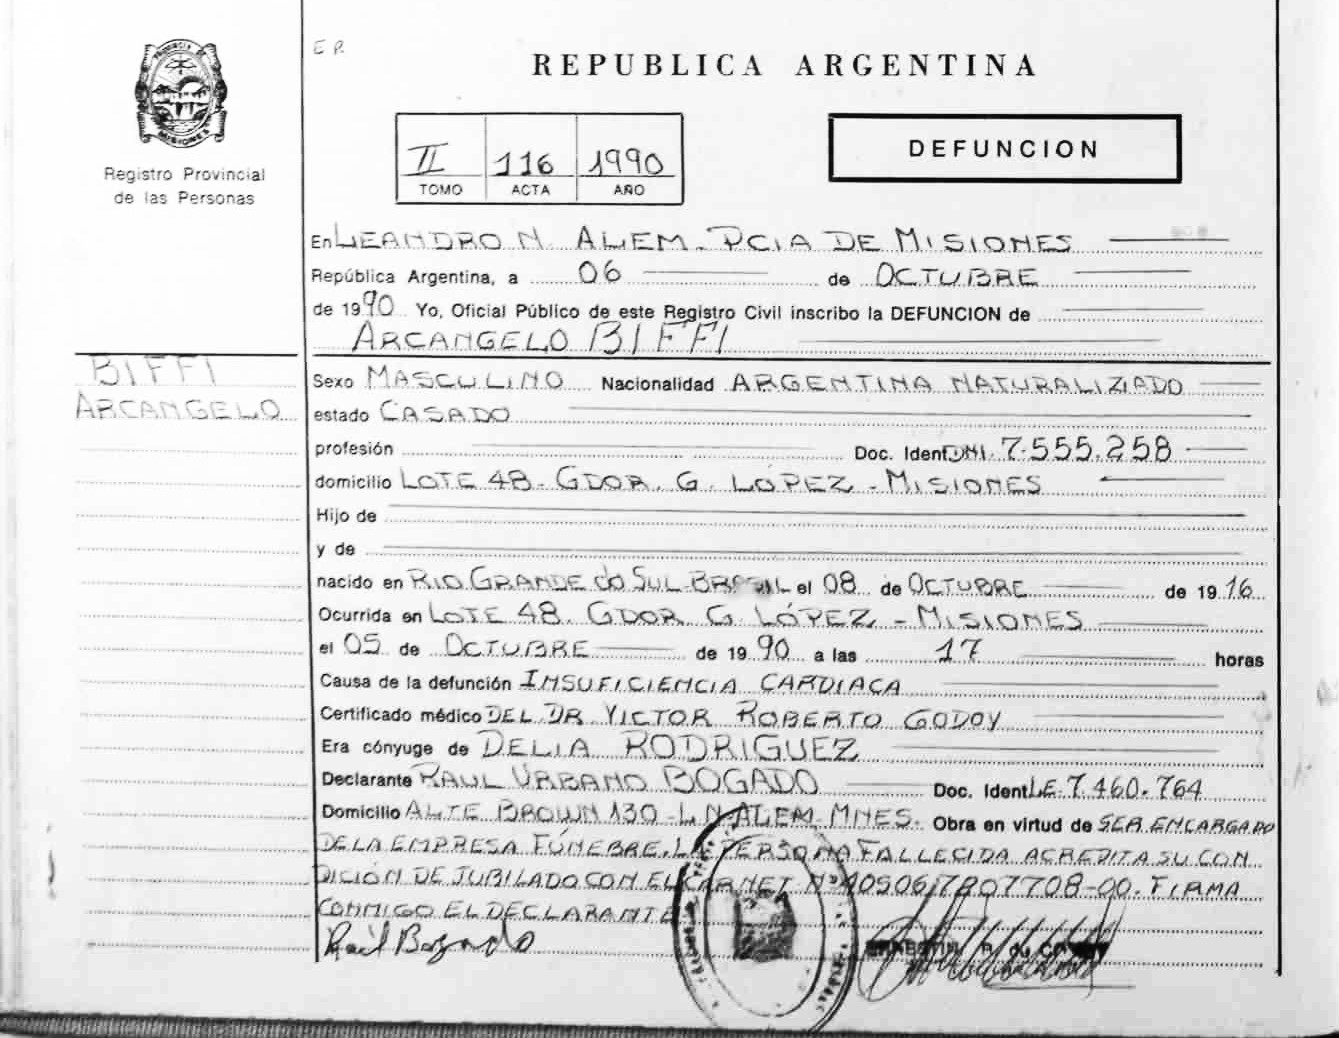 E R.
REPUBLICA ARGENTINA
PROVINCIA DE MISIONES
Registro Provincial
de las Personas
II 116 1990
TOMO ACTA AÑO
DEFUNCION
En LEANDRO N. ALEM. PCIA DE MISIONES
República Argentina, a 06 de OCTUBRE
de 1990 Yo, Oficial Público de este Registro Civil inscribo la DEFUNCION de
ARCANGELO BIFFI
BIFFI
ARCANGELO
Sexo MASCULINO Nacionalidad ARGENTINA NATURALIZIADO
estado CASADO
profesión Doc. Ident DNI. 7.555.258
domicilio LOTE 48. GDOR. G. LÓPEZ - MISIONES
Hijo de
y de
nacido en RIO GRANDE do SUL-BRASIL el 08 de OCTUBRE de 1916
Ocurrida en LOTE 48. GDOR. G. LÓPEZ - MISIONES
el 05 de OCTUBRE de 1990 a las 17 horas
Causa de la defunción INSUFICIENCIA CARDIACA
Certificado médico DEL DR VICTOR ROBERTO GODOY
Era cónyuge de DELIA RODRIGUEZ
Declarante RAUL URBANO BOGADO Doc. Ident LE.7.460.764
Domicilio ALTE BROWN 130-L.N.ALEM-MNES. Obra en virtud de SER ENCARGADO
DE LA EMPRESA FÚNEBRE. LA PERSONA FALLECIDA ACREDITA SU CON
DICIÓN DE JUBILADO CON EL CARNET Nº 40506/7807708-00. FIRMA
CONMIGO EL DECLARANTE
Raúl Bogado